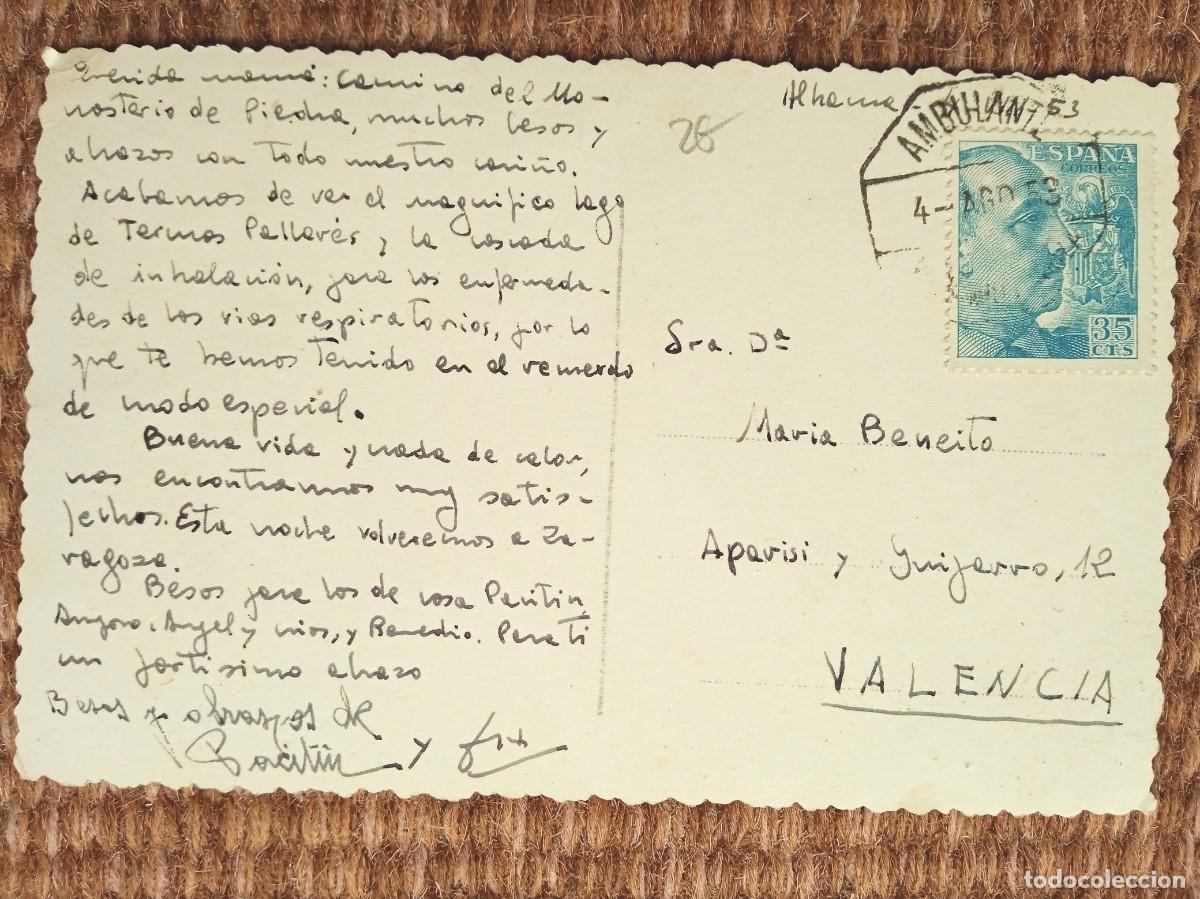 Querida mamá: Camino del Mo-
nasterio de Piedra, muchos besos y
abrazos con todo nuestro cariño.
Acabamos de ver el magnífico lago
de Termas Pallarés y la cascada
de inhalación, para los enfermeda-
des de las vias respiratorias, por lo
que te hemos tenido en el recuerdo
de modo especial.
Buena vida y nada de calor,
nos encontramos muy satis-
fechos. Esta noche volveremos a Za-
ragoza.
Besos para los de casa Pacitin,
Angel y niños, y Benedio. Para ti
un fortisimo abrazo
Besos y abrazos de
Pacitin y
28
Alhama 53
AMBULAN
4- AGO 53
ESPAÑA
CORREOS
35
CTS
Sra. Dª
Maria Beneito
Aparisi y Guijarro, 12
VALENCIA
todocoleccion